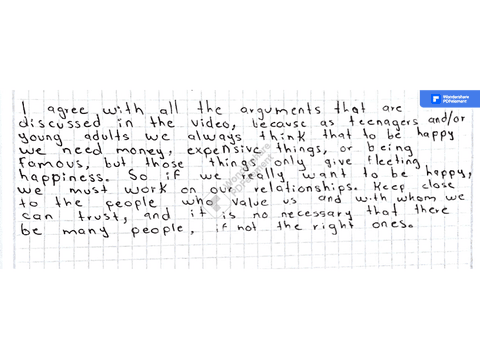 Wondershare
PDFelement
I agree with all the arguments that are
discussed in the video, because as teenagers and/or
young adults we always think that to be happy
we need money, expensive things, or being
famous, but those things only give fleeting
happiness. So if we really want to be happy,
we must work on our relationships. Keep close
to the people who value us and with whom we
can trust, and it is no necessary that there
be many people, if not the right ones.
Wondershare
PDFelement